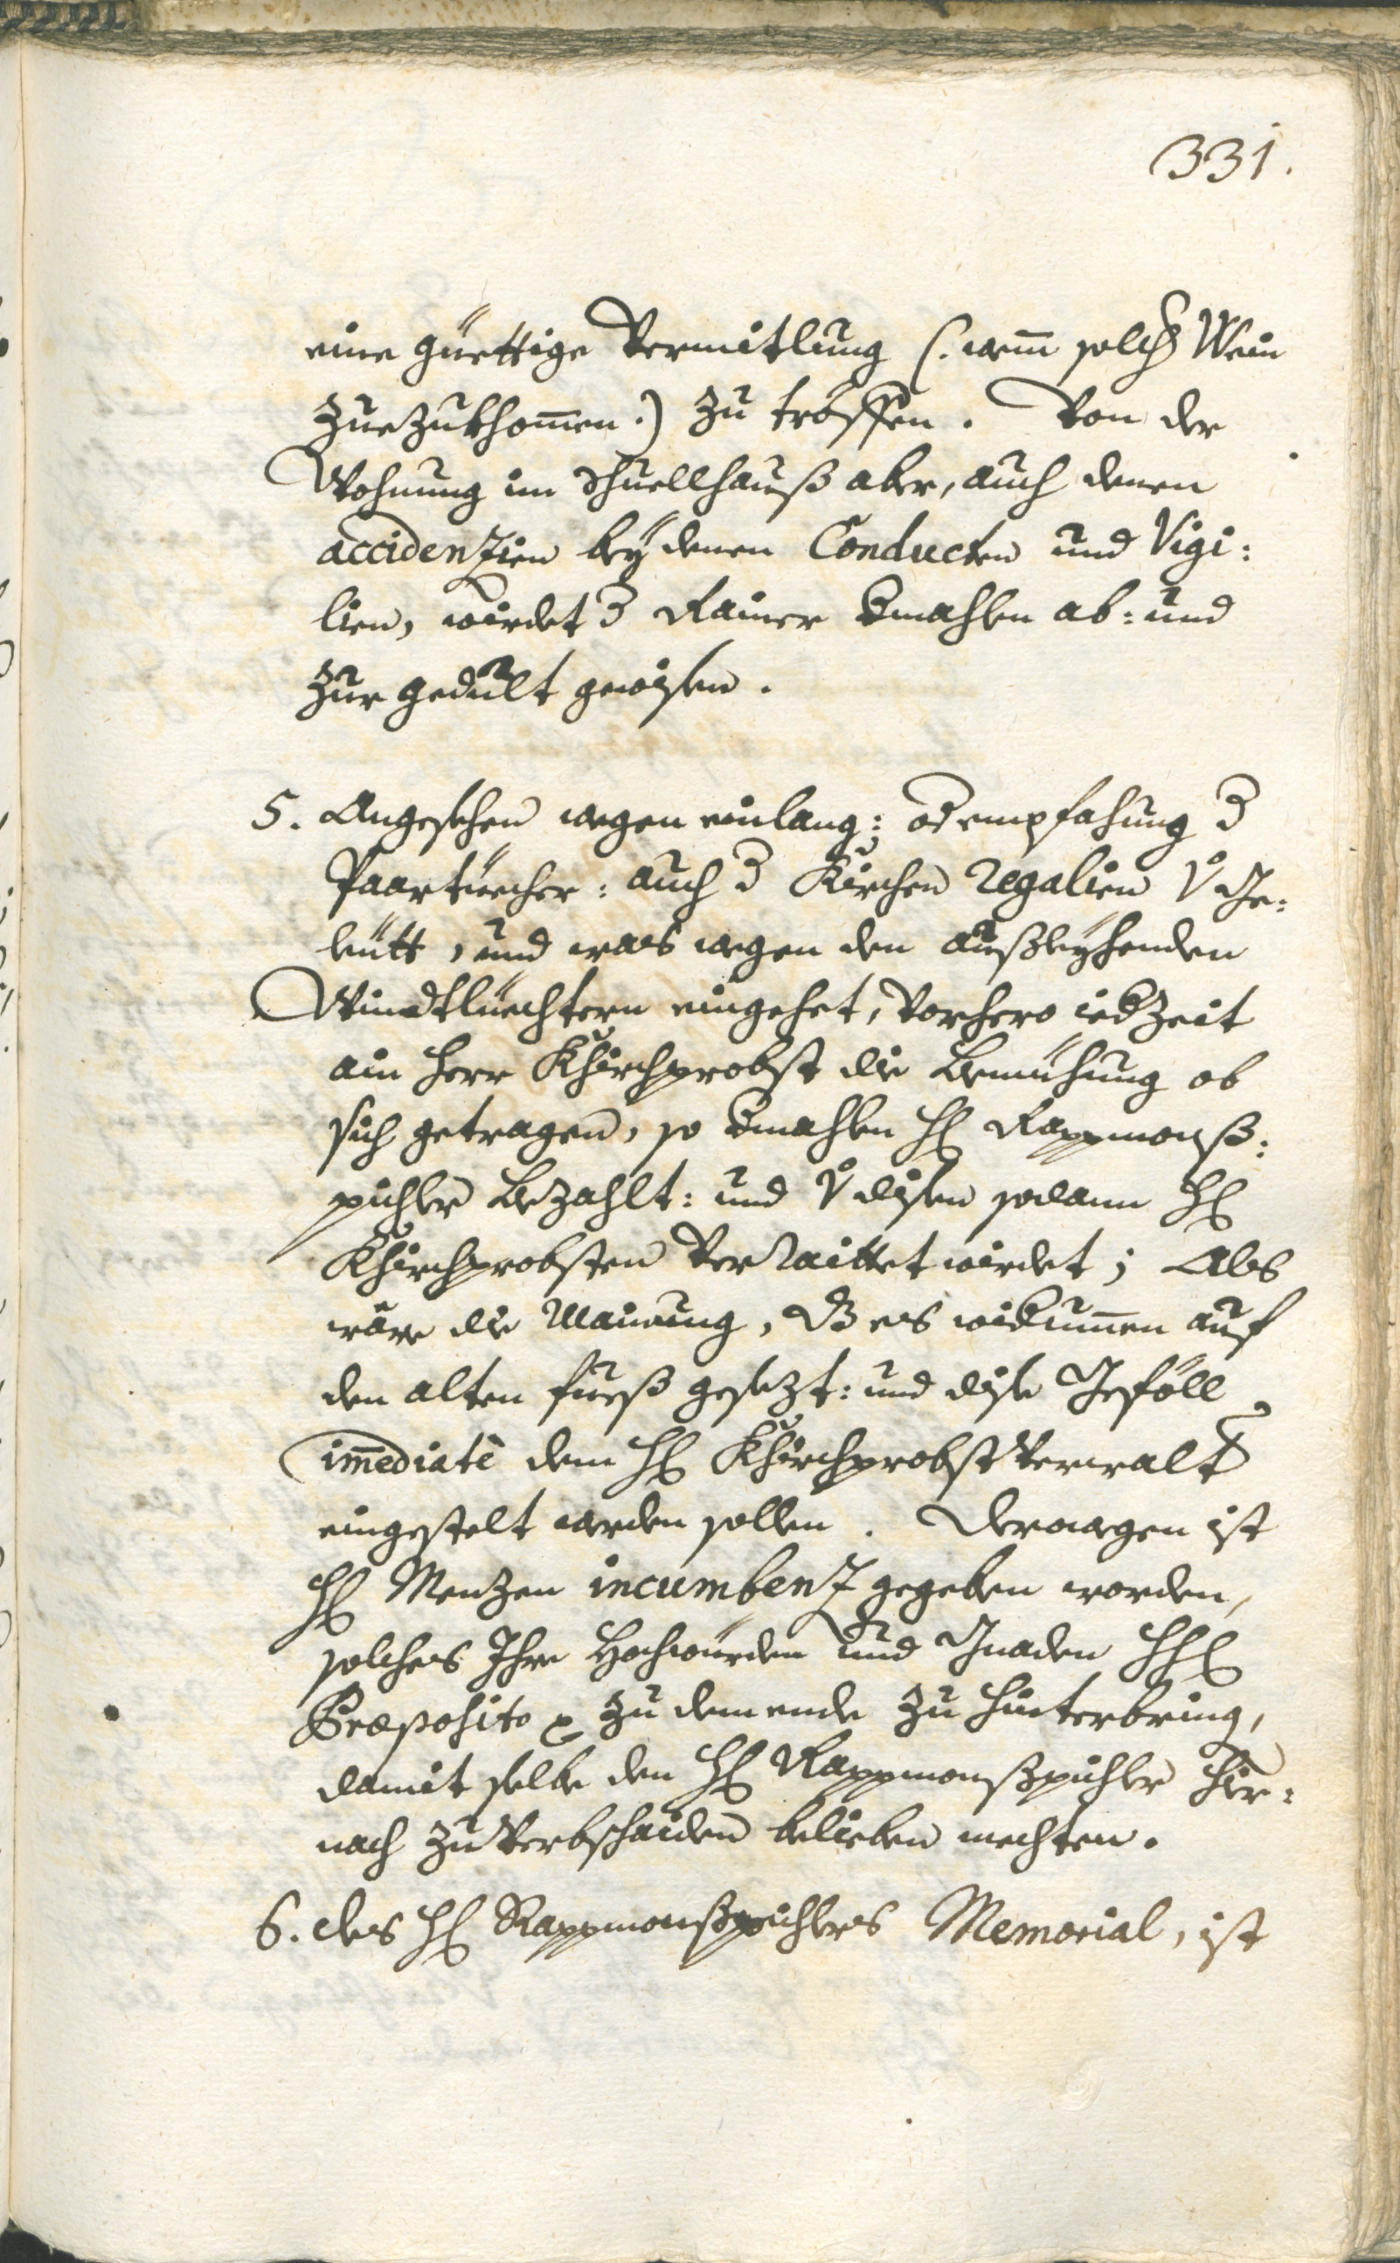 331.
eine güettige Vermitlung (: wem solch Wein
zuezukhommen :) zu tröffen. Von der
Wohnung im Schuellhauß aber, auch denen
accidenzien bey denen Conducten und Vigi:
lien, wirdet d Rainer dmahlen ab: und
zur gedult gewisen.
5. Angesehen wegen einlang: od empfahung d
Paartüecher: auch d Kirchen Regalien v Ge:
leütt, und was wegen den außleyhenden
Windtliechtern eingehet, Vorhero iedzeit
ain Herr Khirchprobst die Bemühung ob
sich getragen, so dmahlen H Rappmonß:
pichler Bezahlt: und v disen sodann H
Khirchprobsten Verraittet wirdet; Als
wäre die Mainung, dz es widumen auf
den alten fueß gesezt: und dise Geföll
immediatè dem H Khirchprobst Verwalt
eingestelt werden sollen. Derwegen ist
H Menzen incumbenz gegeben worden,
solches Ihre Hochwürden und Gnaden HH
Præposito zu dem ende zu hinterbring,
damit selbe den H Rappmonßpichler hier:
nach zu Verbschaiden belieben mechten.
6. des H Rappmonßpichlers Memorial, ist